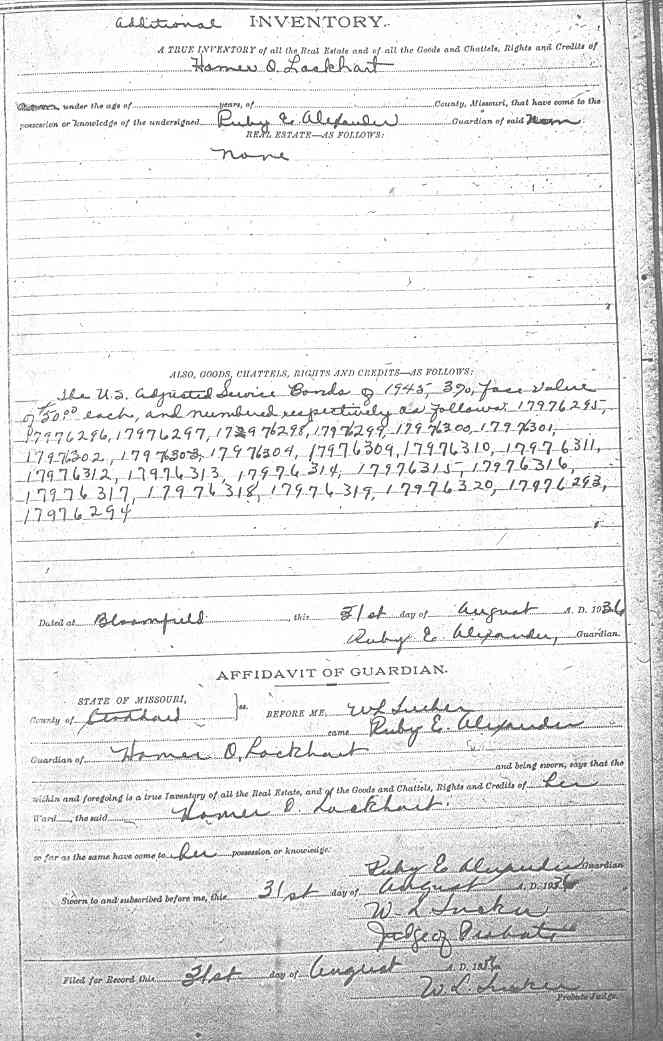 Additional INVENTORY.
A TRUE INVENTORY of all the Real Estate and of all the Goods and Chattels, Rights and Credits of
Homer O. Lockhart
under the age of years, of County, Missouri, that have come to the
possession or knowledge of the undersigned Ruby E. Alexander Guardian of said
REAL ESTATE—AS FOLLOWS:
None
ALSO, GOODS, CHATTELS, RIGHTS AND CREDITS—AS FOLLOWS:
The U.S. Adjusted Service Bonds of 1945, 3%, face value
of $50.00 each, and numbered respectively as follows: 17976295,
17976296, 17976297, 17976298, 17976299, 17976300, 17976301,
17976302, 17976303, 17976304, 17976309, 17976310, 17976311,
17976312, 17976313, 17976314, 17976315, 17976316,
17976317, 17976318, 17976319, 17976320, 17976293,
17976294
Dated at Bloomfield, this 31st day of August A. D. 1936
Ruby E. Alexander, Guardian.
AFFIDAVIT OF GUARDIAN.
STATE OF MISSOURI,
County of Stoddard } ss. BEFORE ME, W L Tucker
came Ruby E. Alexander
Guardian of Homer O. Lockhart
and being sworn, says that the
within and foregoing is a true Inventory of all the Real Estate, and of the Goods and Chattels, Rights and Credits of her
Ward, the said Homer O. Lockhart.
so far as the same have come to her possession or knowledge.
Ruby E Alexander Guardian
Sworn to and subscribed before me, this 31st day of August A. D. 1936
W. L Tucker
Judge of Probate
Filed for Record this 31st day of August A. D. 1936
W. L. Tucker
Probate Judge.